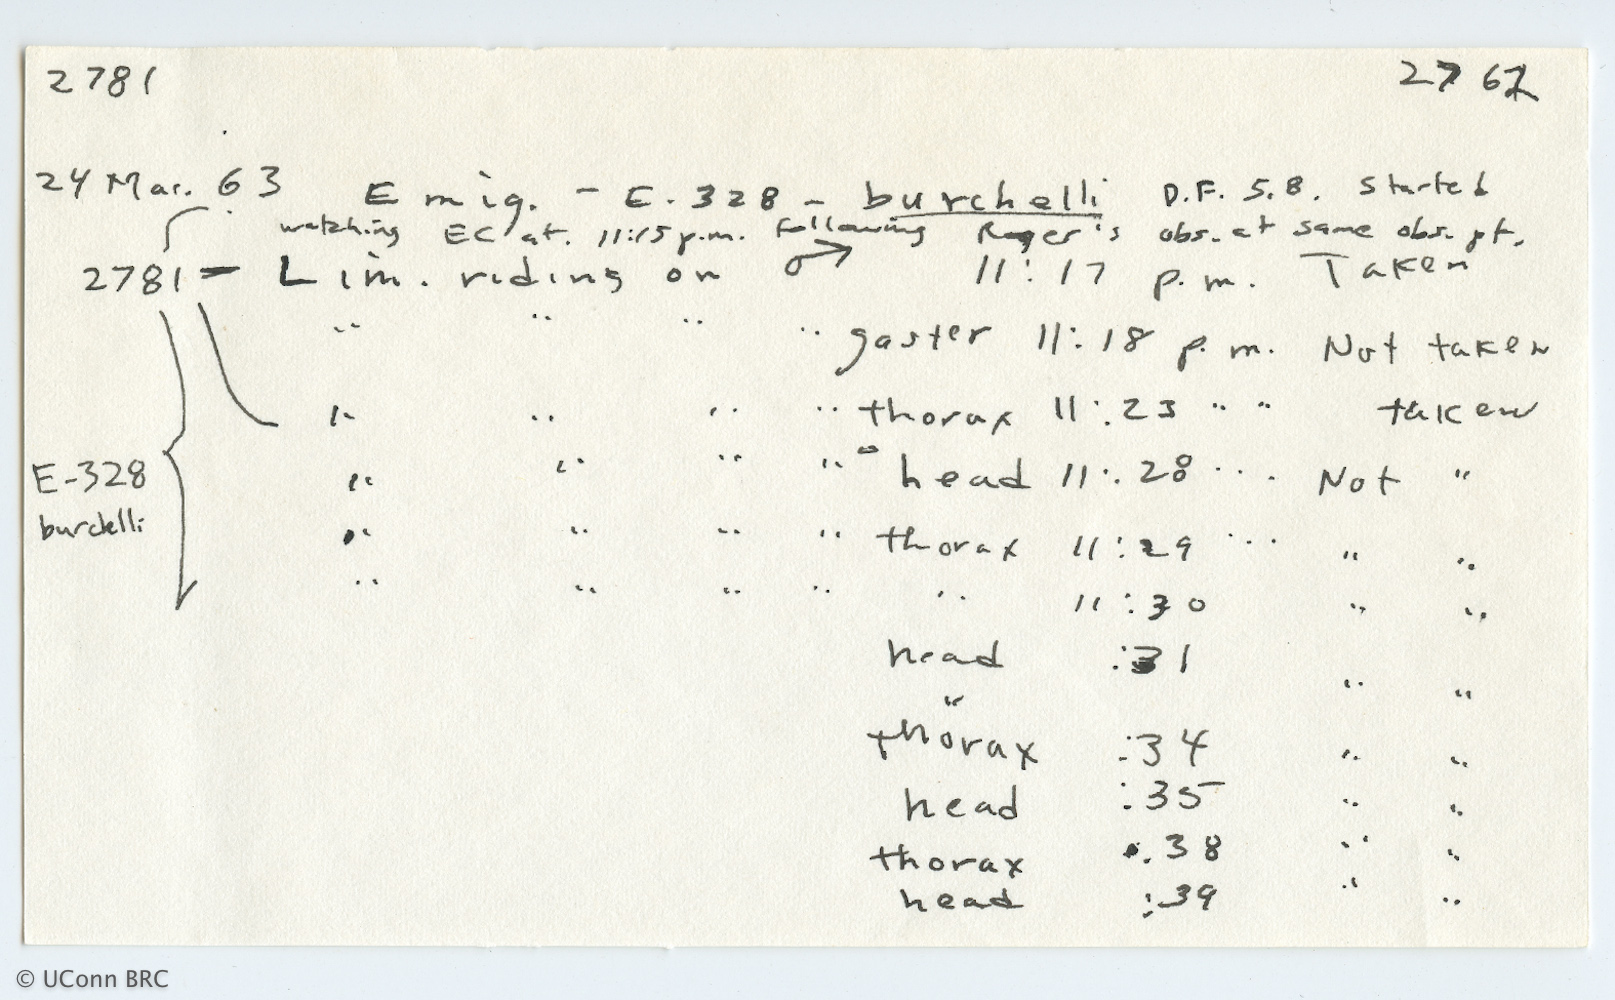 2781 2762
24 Mar. 63 Emig. - E-328 - burchelli D.F. 5.8. Started
watching EC at. 11:15 p.m. following Roger's obs. at same obs. pt.
2781 - Lim. riding on ♂ 11:17 p.m. Taken
" " " " gaster 11:18 p.m. Not taken
" " " " thorax 11:23 " " taken
" " " " head 11:28 " " Not "
" " " " thorax 11:29 " " " "
E-328
burchelli
" " " " " 11:30 " "
head :31 " "
"
thorax :34 " "
head :35 " "
thorax :38 " "
head :39 " "
© UConn BRC